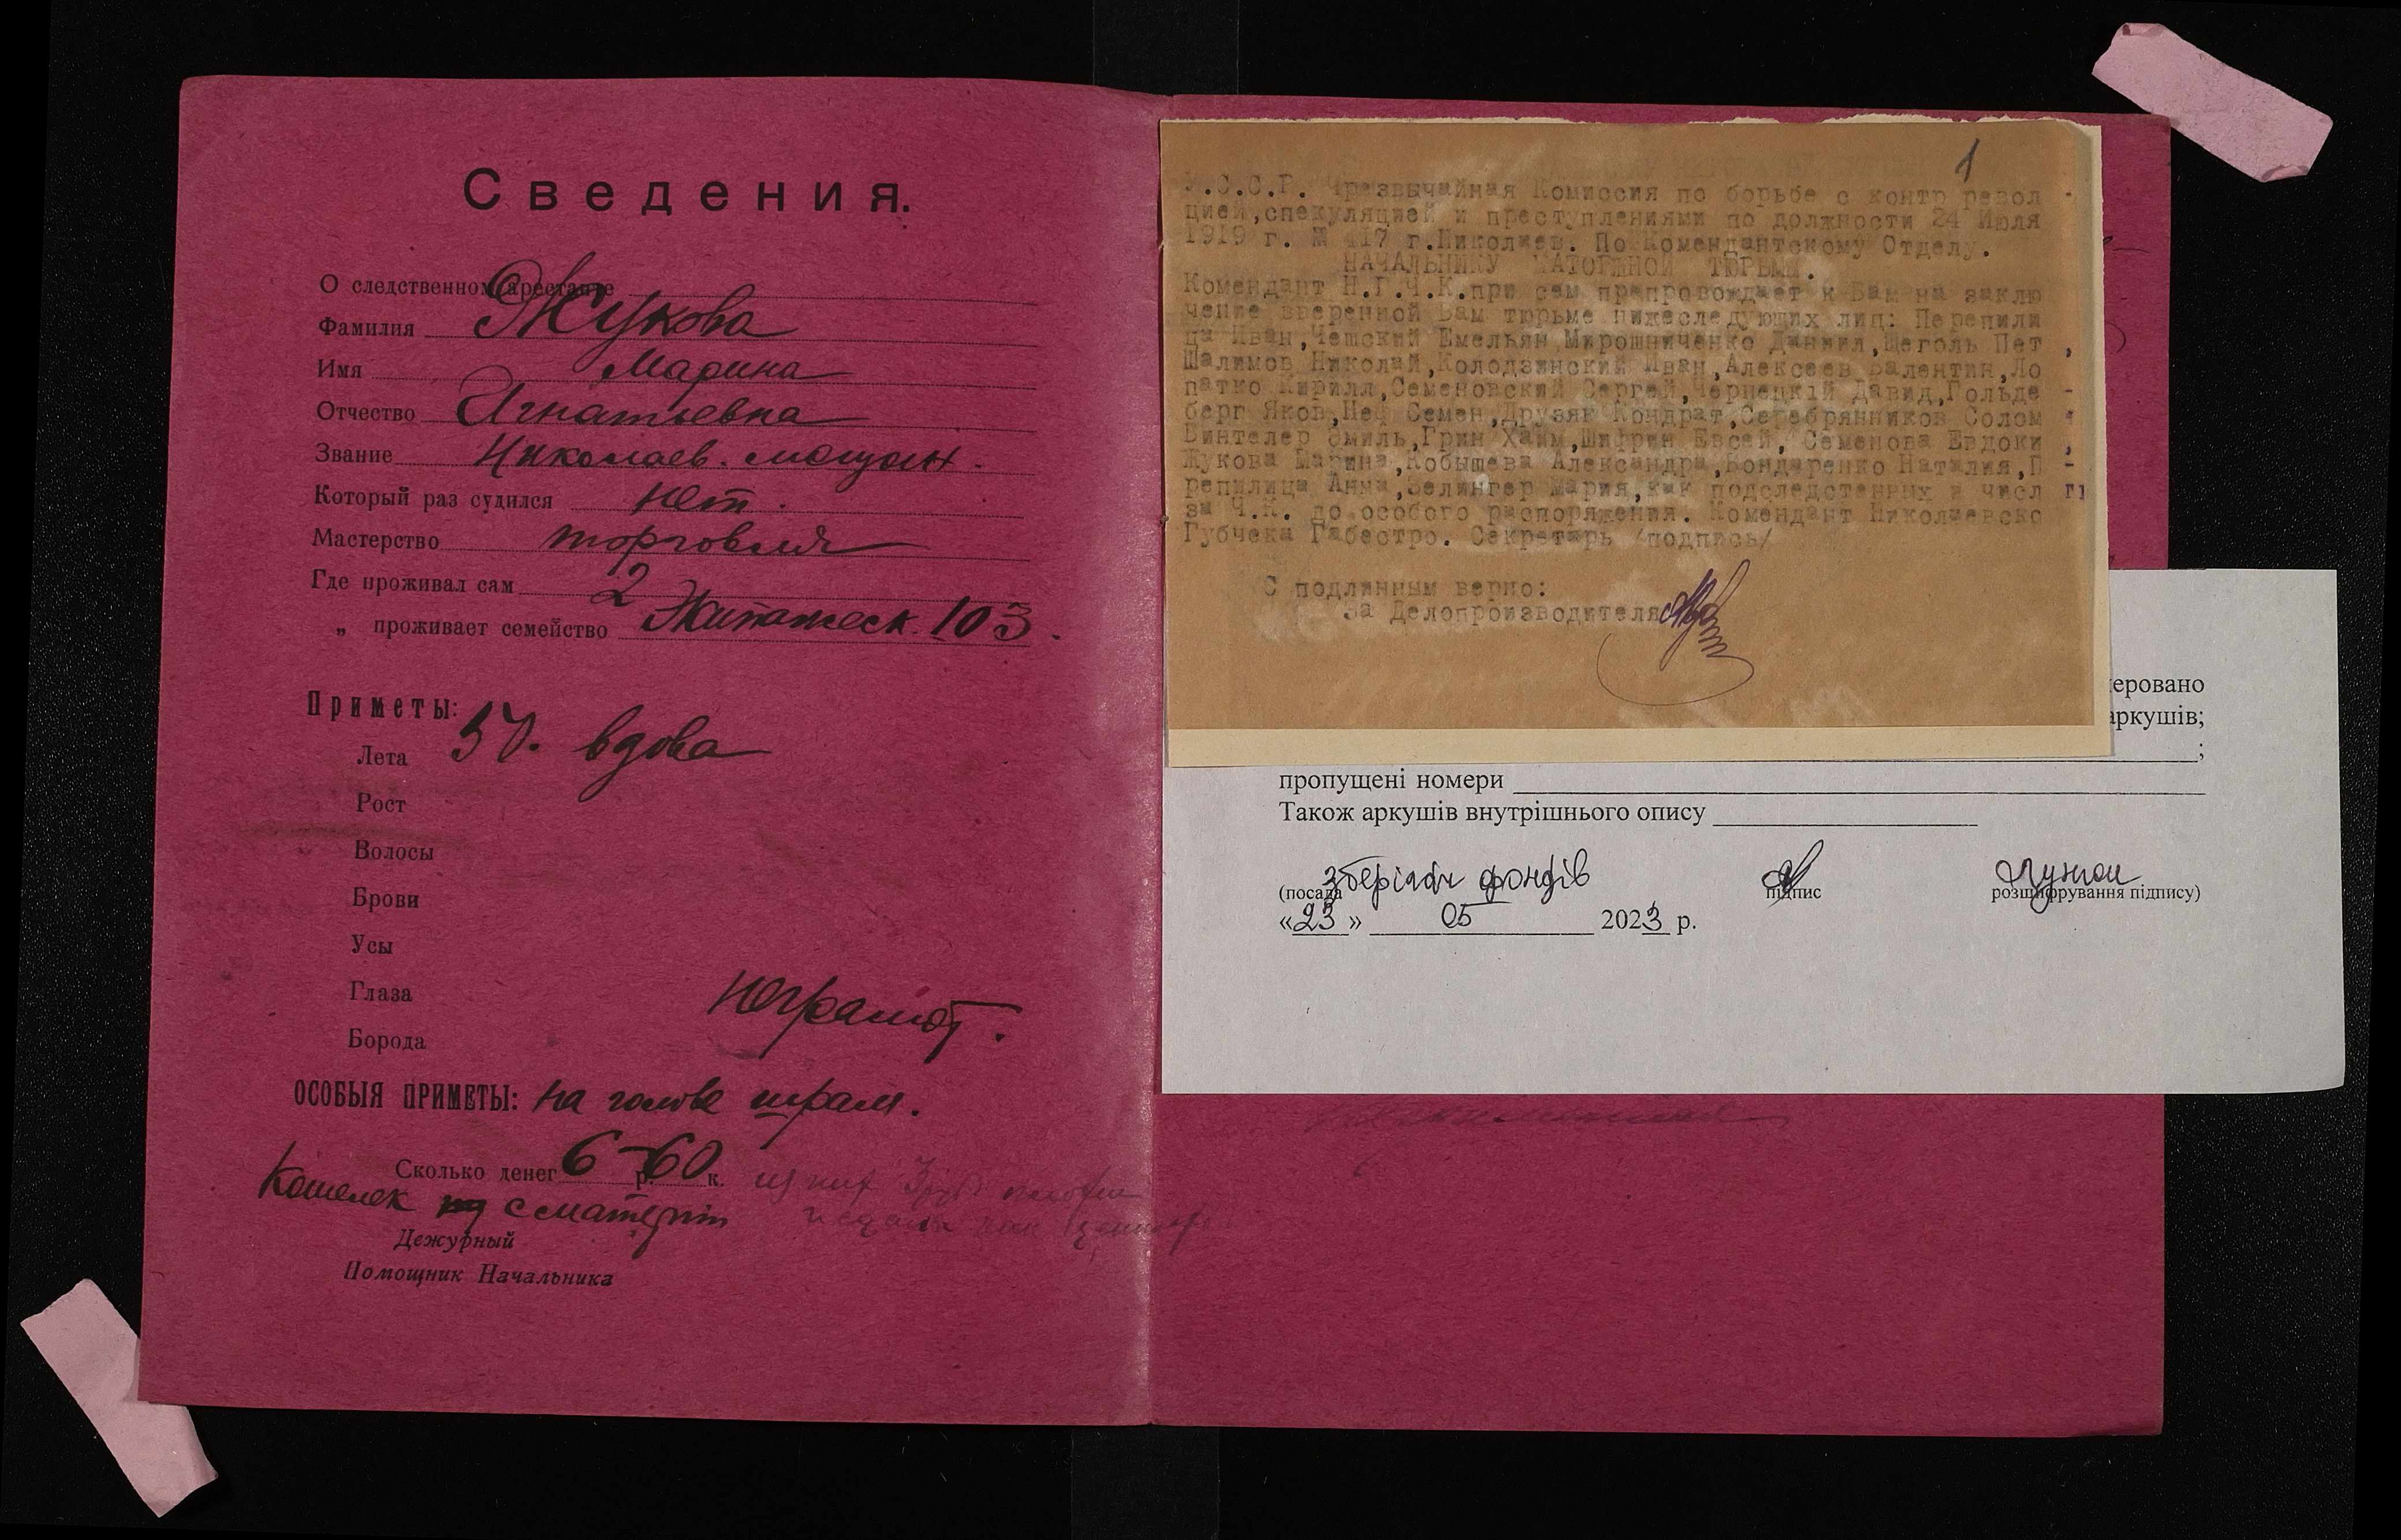 Сведения.
О следственном арестанте
Фамилия Жукова
Имя Марина
Отчество Игнатьевна
Звание Николаев. мещан.
Который раз судился нет.
Мастерство торговля
Где проживал сам 2
„ проживает семейство 103.
Приметы:
Лета вдова
Рост
Волосы
Брови
Усы
Глаза
Борода
неграмот.
ОСОБЫЯ ПРИМЕТЫ: на голове шрам.
Сколько денег 6 р. 60 к. из них
Кошелек
Дежурный
Помощник Начальника
1
У.С.С.Р. Чрезвычайная Комиссия по борьбе с контр револ -
цией,спекуляцией и преступлениями по должности 24 Июля
1919 г. № 417 г.Николаев. По Комендантскому Отделу.
НАЧАЛЬНИКУ КАТОРЖНОЙ ТЮРЬМЫ.
Комендант Н.Г.Ч.К.при сем препровождает к Вам на заклю
чение вверенной Вам тюрьме нижеследующих лиц: Перепили
ца Иван,Чешский Емельян,Мирошниченко Даниил,Щеголь Пет ,
Шалимов Николай,Колодзинский Иван,Алексеев Валентин,Ло
патко Кирилл,Семеновский Сергей,Чернецкій Давид,Гольде -
берг Яков,Неф Семен,Друзяк Кондрат,Серебрянников Солом
Винтелер Эмиль,Грин Хаим,Шифрин Евсей, Семенова Евдоки ,
Жукова Марина,Кобышева Александра,Бондаренко Наталия,П -
репилица Анна,Зелингер Мария,как подследственных и числ
за Ч.К. до особого распоряжения. Комендант Николаевско
Губчека Габестро. Секретарь /подпись/
С подлинным верно:
За Делопроизводителя
меровано
аркушів;
;
пропущені номери
Також аркушів внутрішнього опису
зберігач фондів
(посада підпис розшифрування підпису)
«23» 05 2023 р.